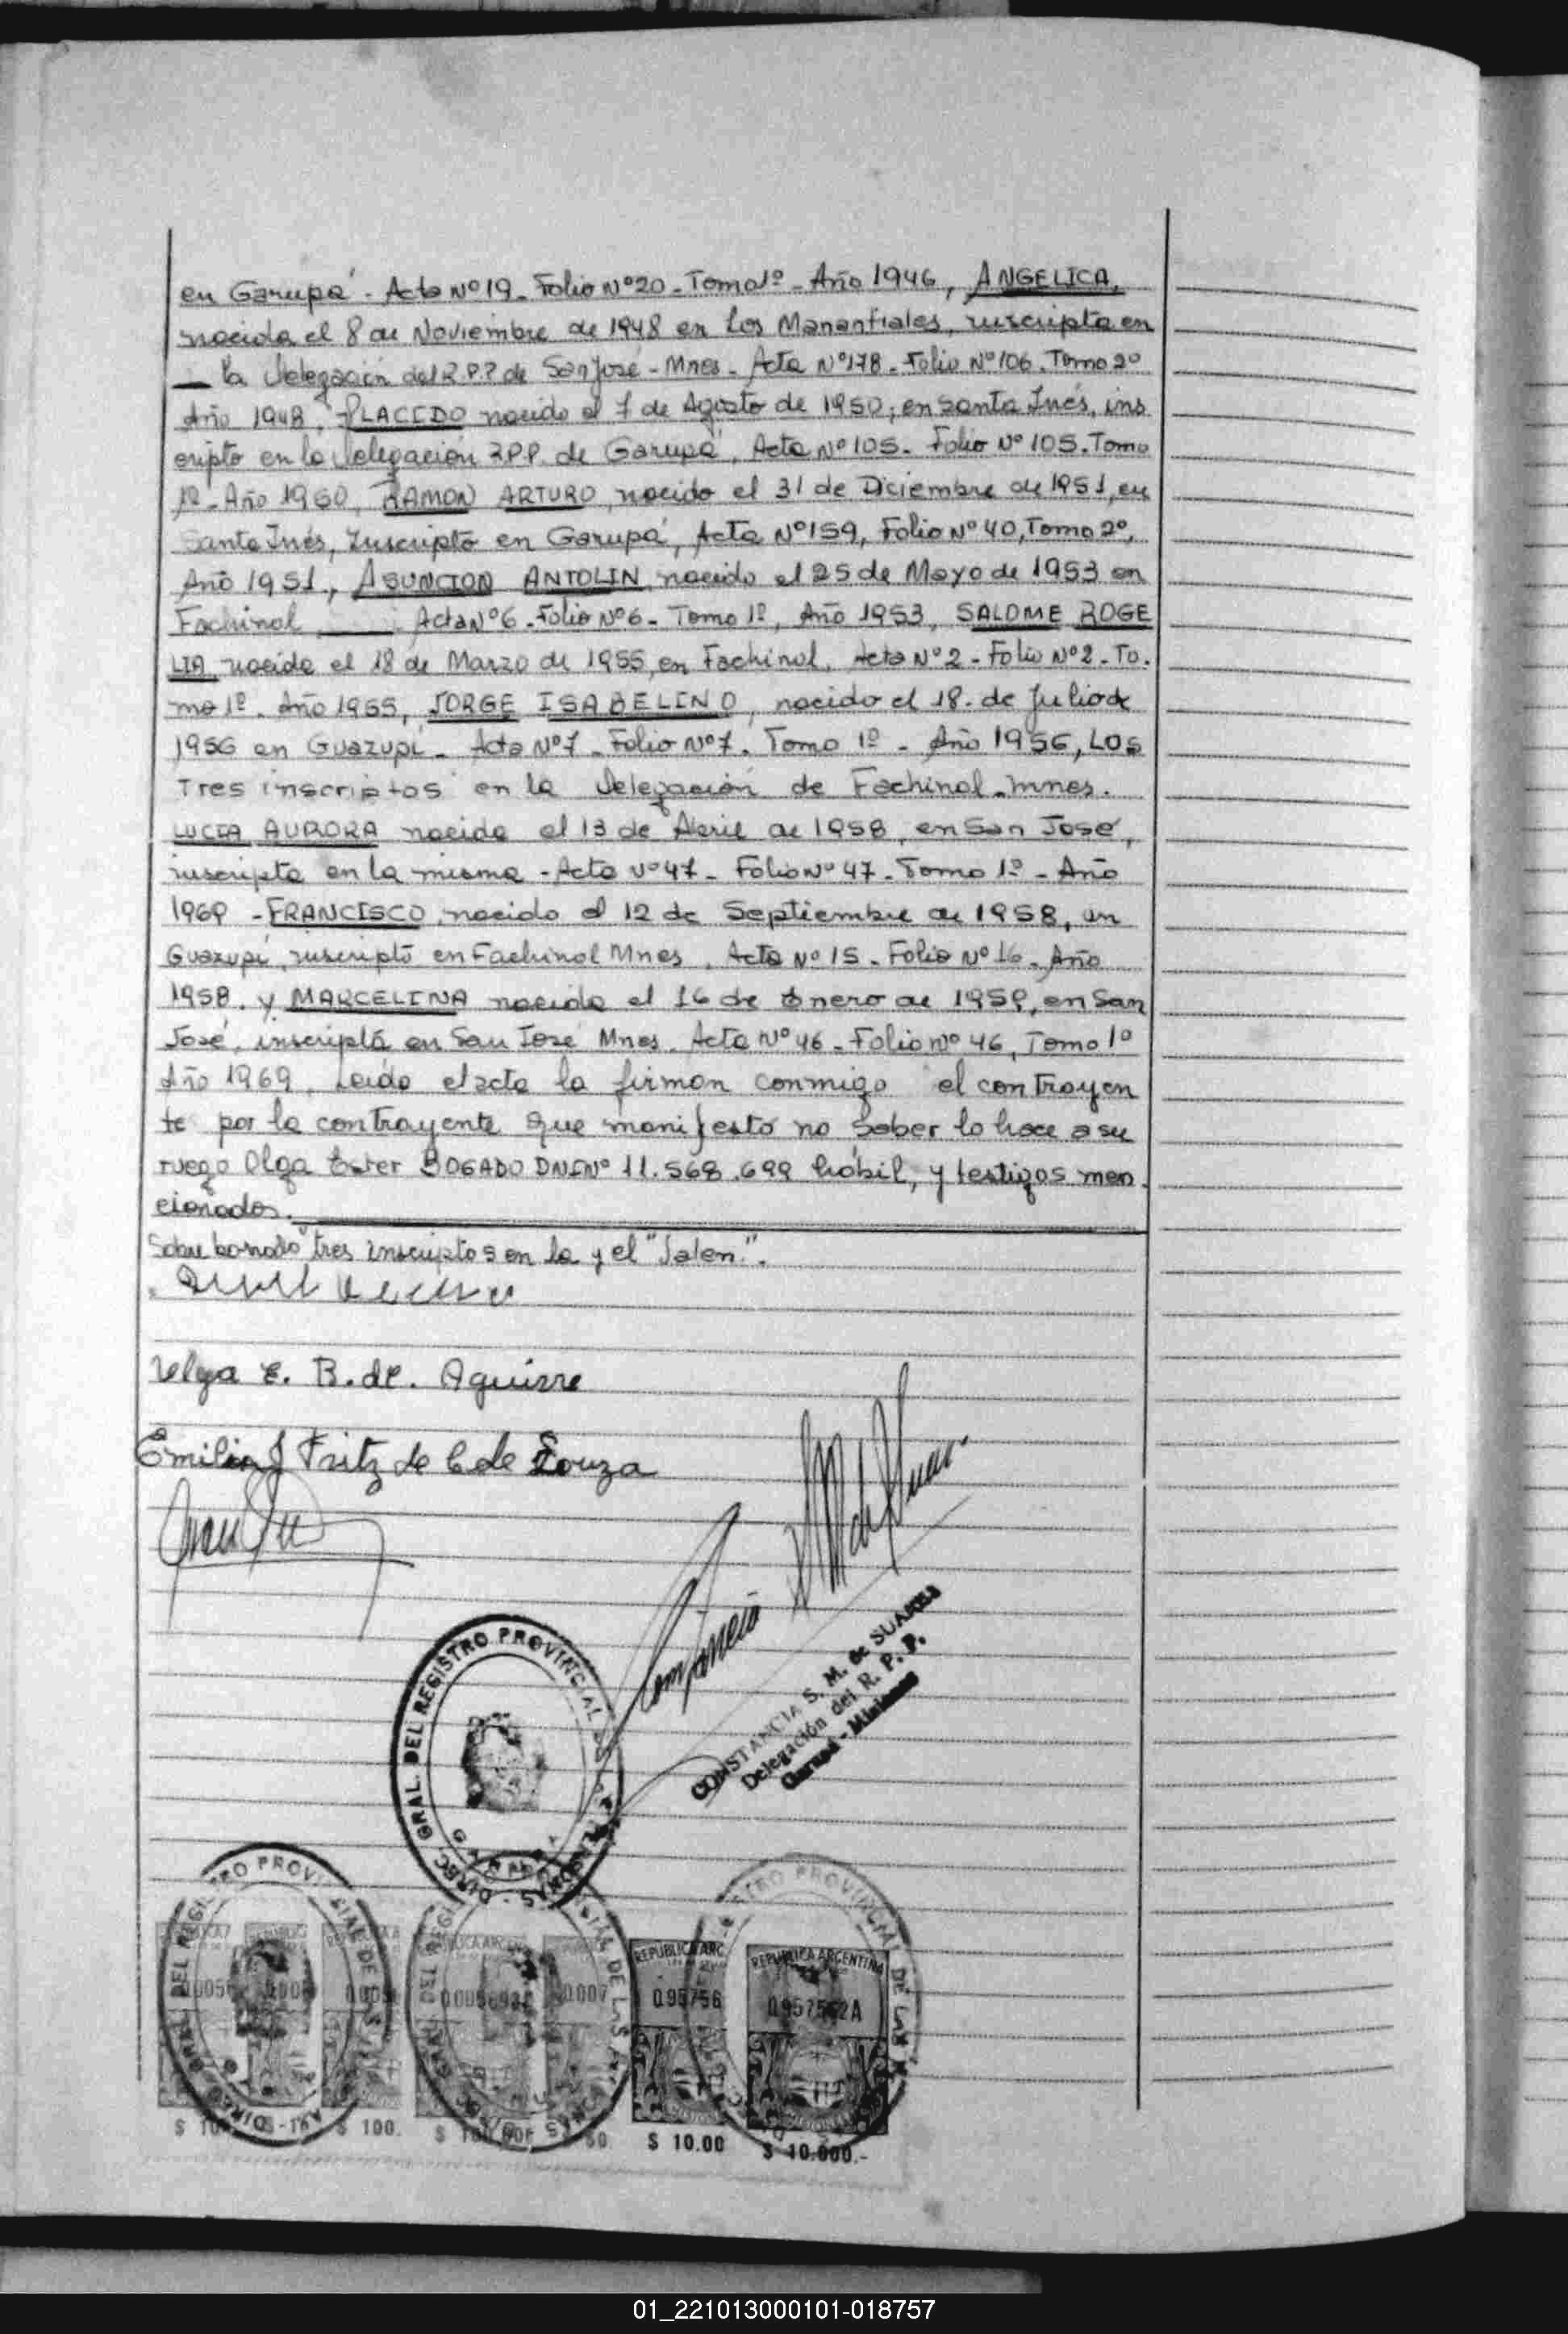 en Garupá - Acta Nº 19 - Folio Nº 20 - Tomo 1º - Año 1946, ANGELICA,
nacida el 8 de Noviembre de 1948 en Los Manantiales, inscripta en
la Delegación del R.P.P de San José - Mnes - Acta Nº 178 - Folio Nº 106 - Tomo 2º
Año 1948, PLACIDO nacido el 7 de Agosto de 1950; en Santa Inés, ins
cripto en la Delegación R.P.P. de Garupá, Acta Nº 105 - Folio Nº 105. Tomo
1º - Año 1950, RAMON ARTURO, nacido el 31 de Diciembre de 1951, en
Santa Inés, Inscripto en Garupá, Acta Nº 159, Folio Nº 40, Tomo 2º,
Año 1951., ASUNCION ANTOLIN, nacido el 25 de Mayo de 1953 en
Fachinal Acta Nº 6 - Folio Nº 6 - Tomo 1º, Año 1953, SALOME ROGE
LIA nacida el 18 de Marzo de 1955, en Fachinal, Acta Nº 2 - Folio Nº 2 - To.
mo 1º. Año 1955, JORGE ISABELINO, nacido el 18. de Julio de
1956 en Guazupí - Acta Nº 7 - Folio Nº 7. Tomo 1º - Año 1956, LOS
Tres inscriptos en la Delegación de Fachinal - Mnes.
LUCIA AURORA nacida el 13 de Abril de 1958, en San José,
inscripta en la misma - Acta Nº 47 - Folio Nº 47 - Tomo 1º - Año
1969 - FRANCISCO, nacido el 12 de Septiembre de 1958, en
Guazupí, inscripto en Fachinal Mnes, Acta Nº 15 - Folio Nº 16 - Año
1958. y MARCELINA nacida el 16 de Enero de 1959, en San
José, inscripta en San José Mnes. Acta Nº 46 - Folio Nº 46, Tomo 1º
Año 1969. Leida el acta la firman conmigo el contrayen
te por la contrayente que manifestó no saber lo hace a su
ruego Olga Ester BOGADO DNI Nº 11.568.699 hábil, y testigos men
cionados.
Sobre borrado "tres inscriptos en la y el "Salen".
Olga E. B. de. Aguirre
Emilia J Fritz de C de Souza
Constancia S M de Suarez
CONSTANCIA S. M. de SUAREZ
Delegación del R. P. P.
Garupá - Misiones
DIREC. GRAL. DEL REGISTRO PROVINCIAL DE LAS PERSONAS
REPUBLICA ARGENTINA
095756
0957562A
$ 100.
$ 10.00
$ 10.000.-
01_221013000101-018757